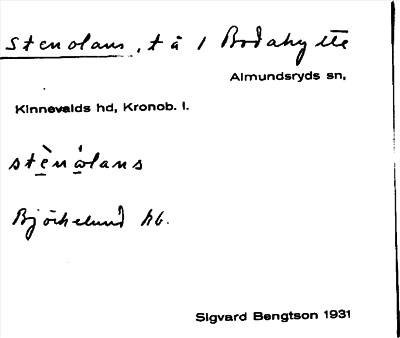 Stenolans, t å 1 Bodahytte
Almundsryds sn,
Kinnevalds hd, Kronob. l.
stènålans
Björkelund hb.
Sigvard Bengtson 1931